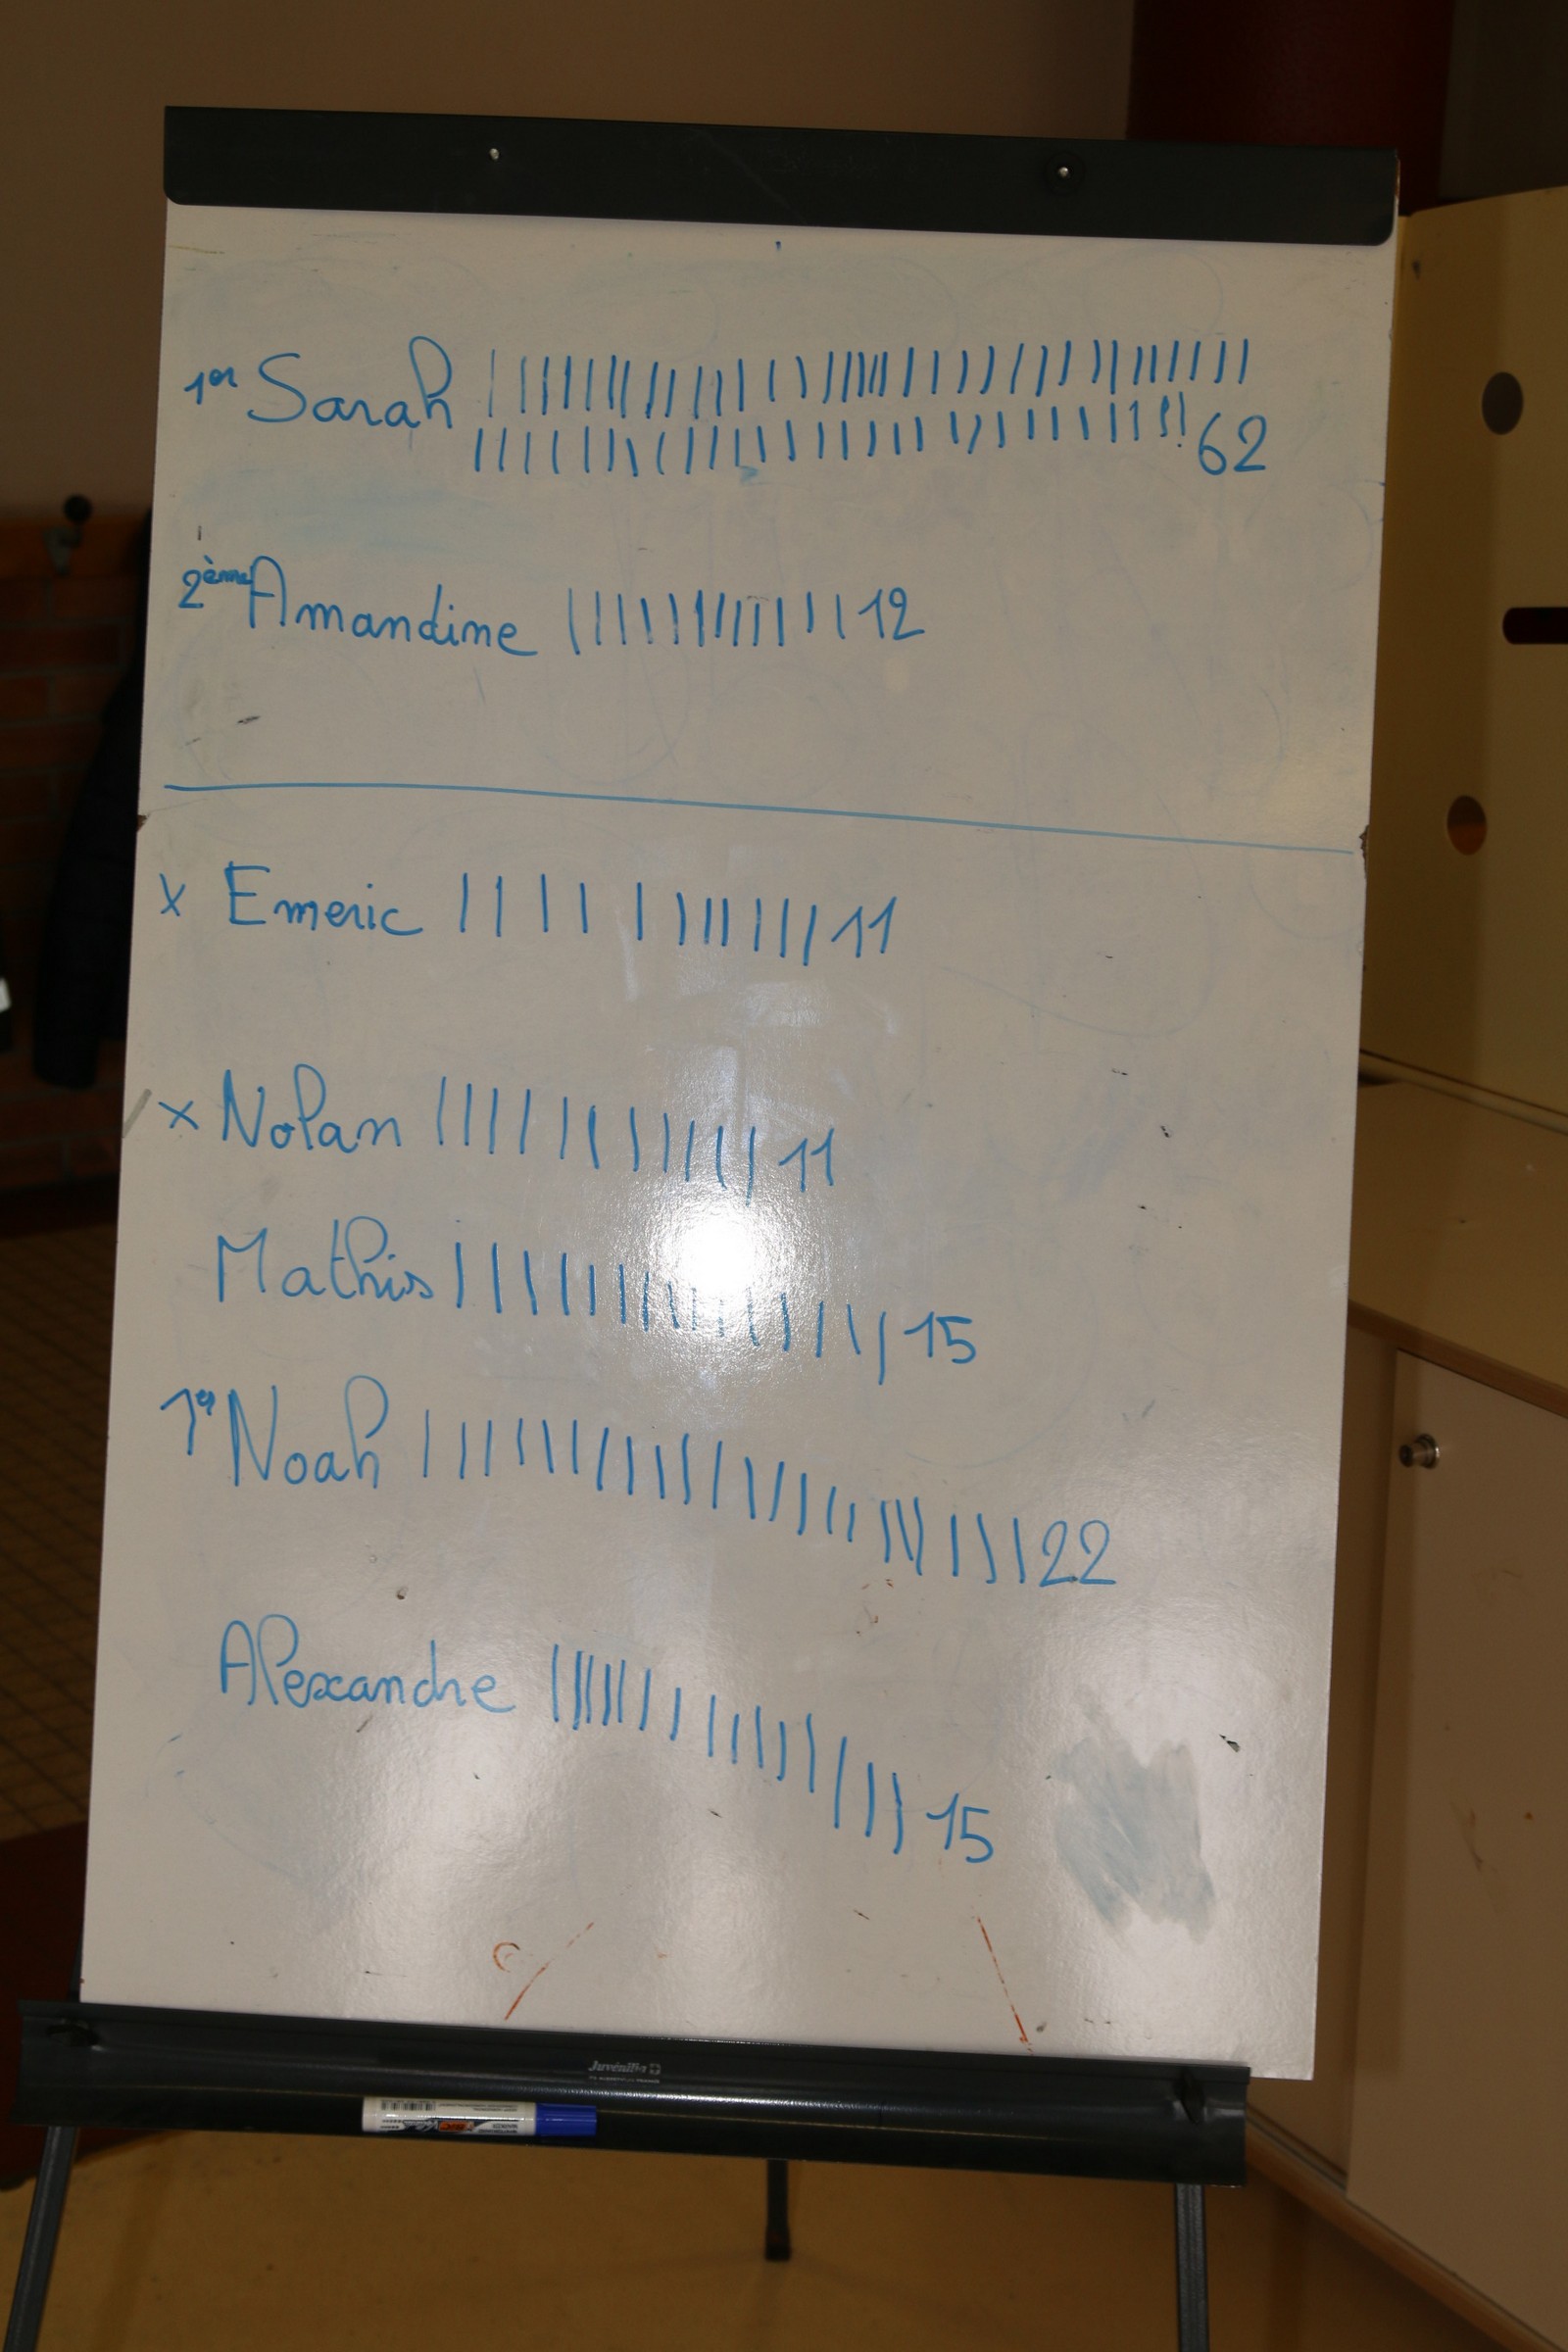 1er Sarah
62
2ème Amandine 12
x Emeric 11
x Nolan 11
Mathis 15
1er Noah 22
Alexandre 15
Juvénilia